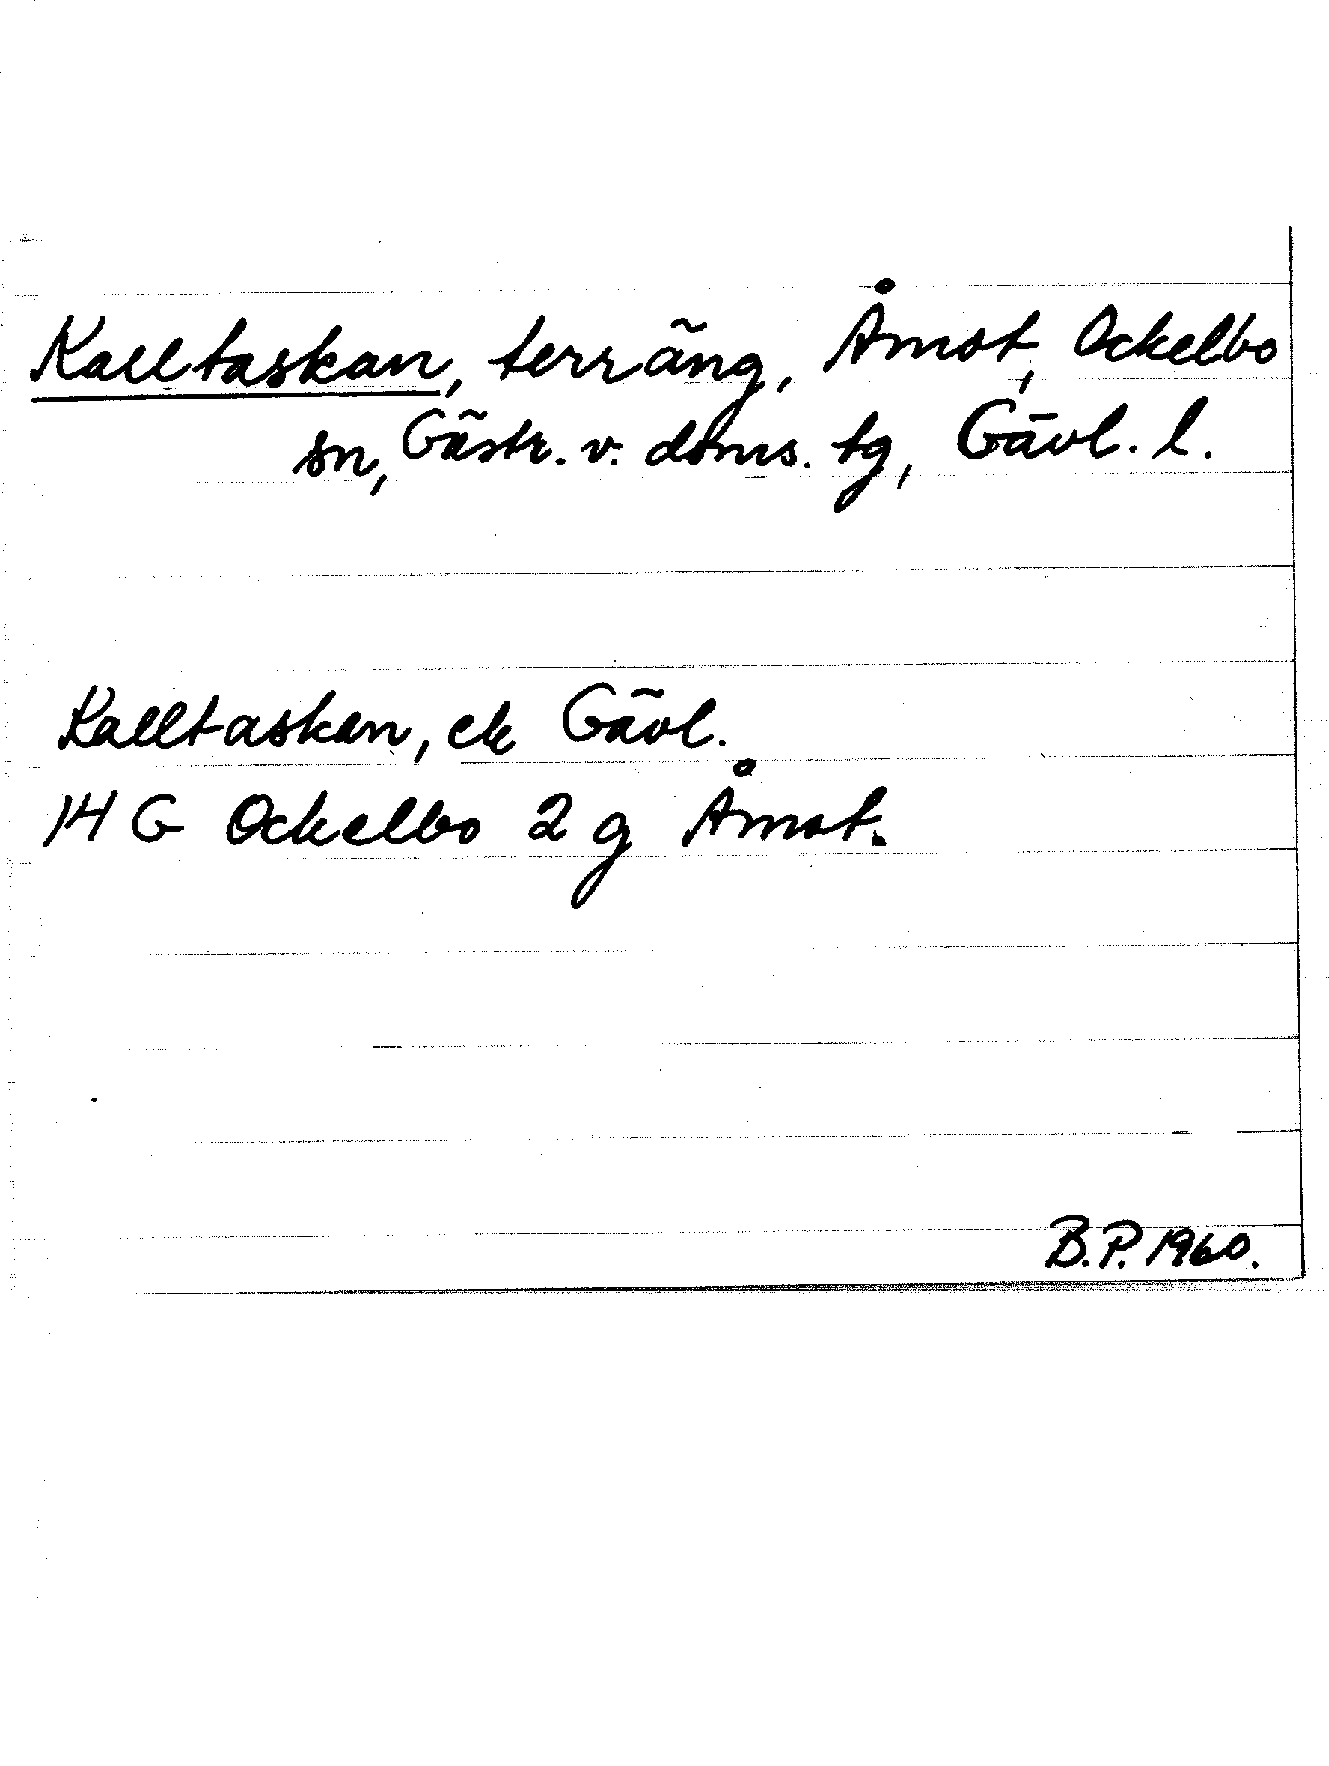 Kalltaskan, terräng, Åmot, Ockelbo
sn, Gästr. v. doms. tg, Gävl. l.
Kalltaskan, ek Gävl.
14 G Ockelbo 2 g Åmot.
B.P. 1960.